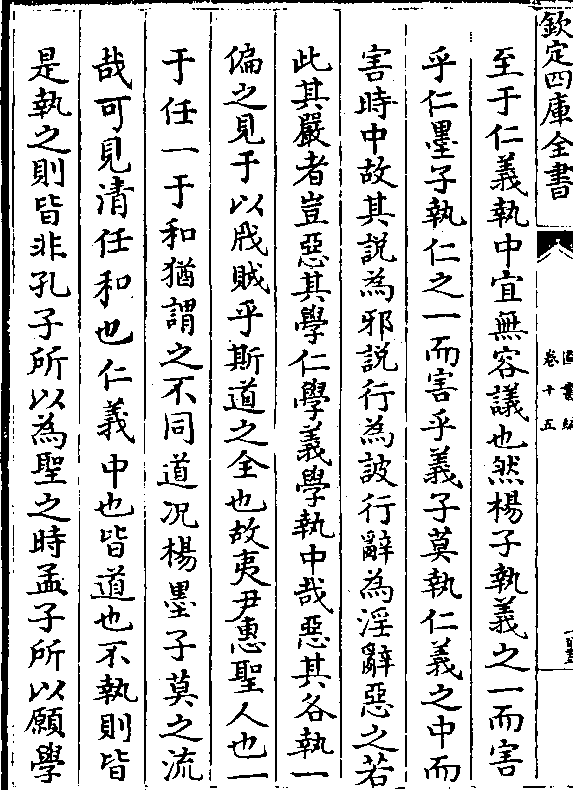 欽定四庫全書
卷十五
至于仁義執中宜無容議也然楊子執義之一而害
乎仁墨子執仁之一而害乎義子莫執仁義之中而
害時中故其說為邪說行為詖行辭為淫辭惡之若
此其嚴者豈惡其學仁學義學執中哉惡其各執一
偏之見于以戕賊乎斯道之全也故夷尹惠聖人也一
于任一于和猶謂之不同道况楊墨子莫之流
哉可見清任和也仁義中也皆道也不執則皆
是執之則皆非孔子所以為聖之時孟子所以願學